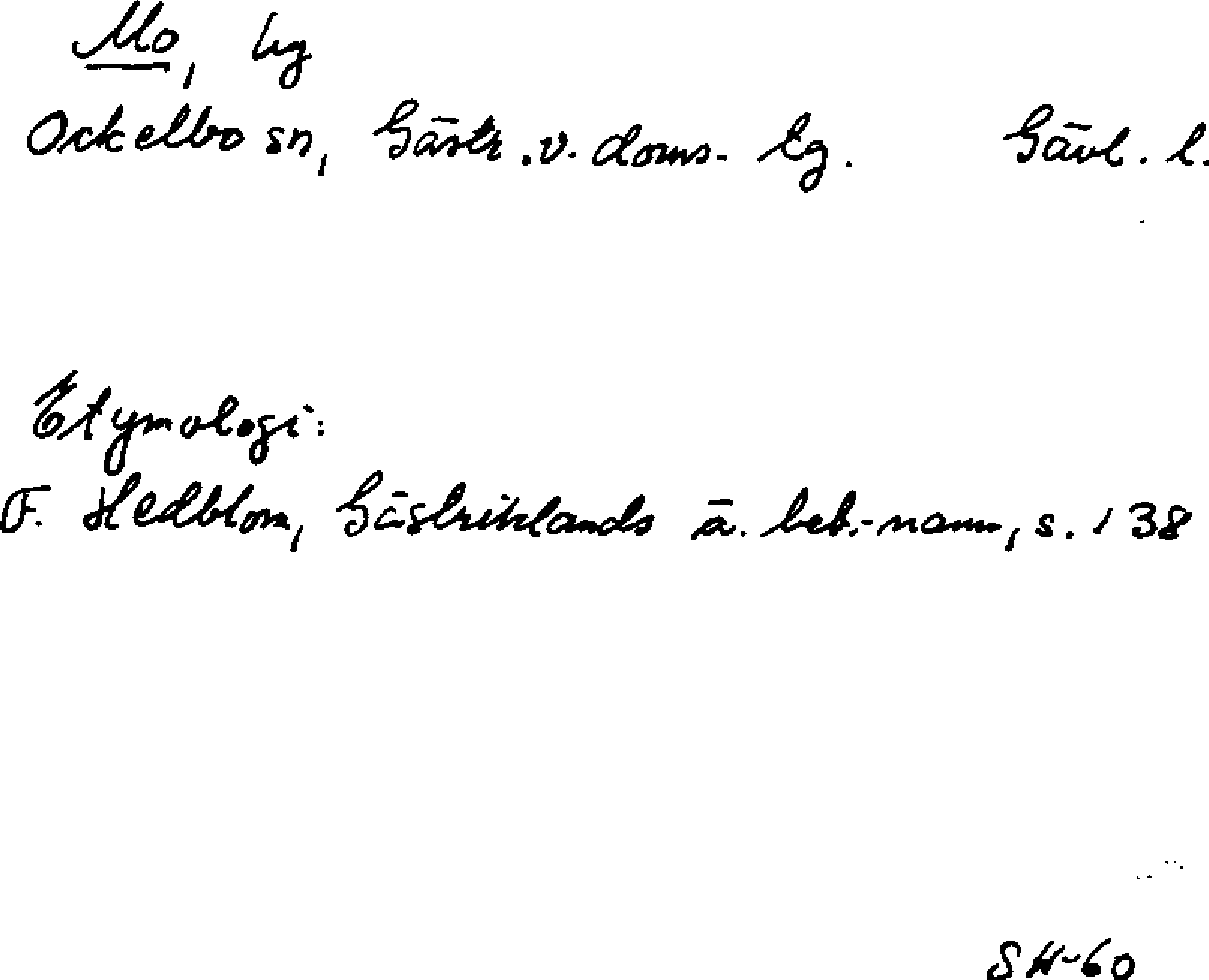 Mo, by
Ockelbo sn, Gästr. v. doms. lg. Gävl. l.
Etymologi:
F. Hedblom, Gästriklands ä. beb.-namn, s. 138
SH-60